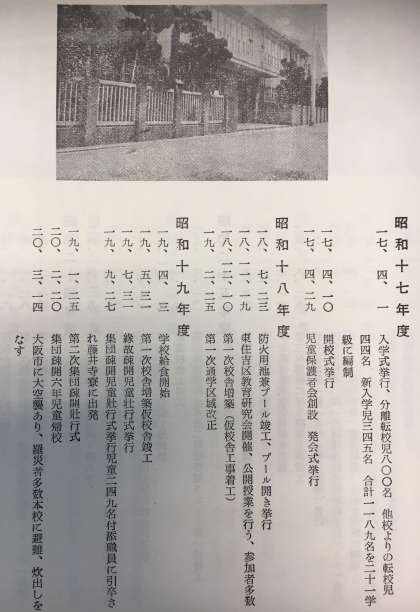 昭和十七年度
一七、四、一　入学式挙行、分離転校児八〇〇名　他校よりの転校児
四四名　新入学児三四五名　合計一一八九名を二十一学
級に編制
一七、四、一〇　開校式挙行
一七、四、二九　児童保護者会創設　発会式挙行
昭和十八年度
一八、七、二三　防火用池兼プール竣工、プール開き挙行
一八、一一、一九　東住吉区教育研究会開催、公開授業を行う、参加者多数
一八、一二、一〇　第一次校舎増築（仮校舎工事着工）
一九、二、二五　第一次通学区域改正
昭和十九年度
一九、四、三　学校給食開始
一九、五、三一　第一次校舎増築仮校舎竣工
一九、七、三一　縁故疎開児童壮行式挙行
一九、九、二七　集団疎開児童壮行式挙行児童二四九名付添職員に引卒さ
れ藤井寺寮に出発
一九、一一、二五　第二次集団疎開壮行式
二〇、二、二〇　集団疎開六年児童帰校
二〇、三、一四　大阪市に大空襲あり、罹災者多数本校に避難、炊出しを
なす